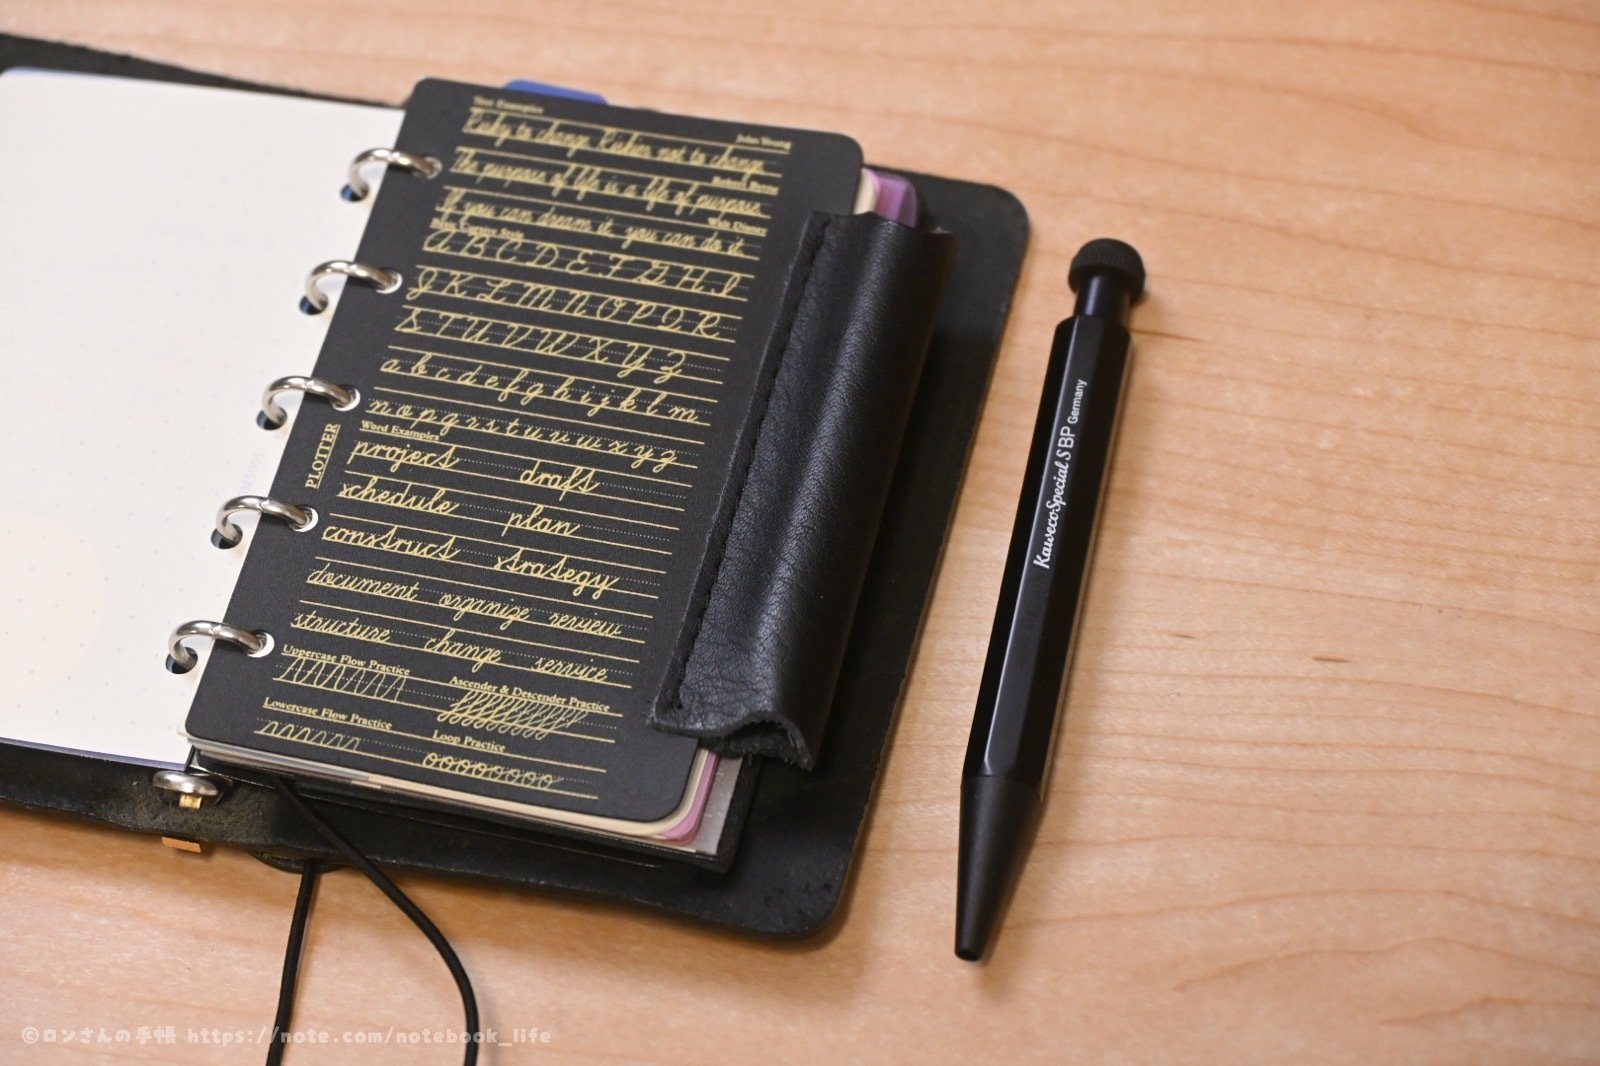 Text Examples
Risky to change, Riskier not to change.
John Young
The purpose of life is a life of purpose.
Robert Byrne
If you can dream it, you can do it.
Walt Disney
A B C D E F G H I
J K L M N O P Q R
S T U V W X Y Z
a b c d e f g h i j k l m
n o p q r s t u v w x y z
Word Examples
project draft
schedule plan
construct strategy
document organize review
structure change service
Uppercase Flow Practice
Ascender & Descender Practice
Lowercase Flow Practice
Loop Practice
PLOTTER
KawecoSpecial S BP Germany
©ロンさんの手帳 https://note.com/notebook_life